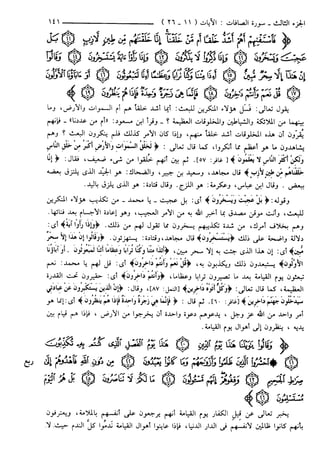 الجزء الثالث ـ سورة الصافات : الآيات ( ١١ ـ ٢٦ ) ١٤١
فَاسْتَفْتِهِمْ أَهُمْ أَشَدُّ خَلْقًا أَم مَّنْ خَلَقْنَا إِنَّا خَلَقْنَاهُم مِّن طِينٍ لَّازِبٍ
بَلْ عَجِبْتَ وَيَسْخَرُونَ وَإِذَا ذُكِّرُوا لَا يَذْكُرُونَ وَإِذَا رَأَوْا آيَةً يَسْتَسْخِرُونَ وَقَالُوا
إِنْ هَٰذَا إِلَّا سِحْرٌ مُّبِينٌ أَإِذَا مِتْنَا وَكُنَّا تُرَابًا وَعِظَامًا أَإِنَّا لَمَبْعُوثُونَ أَوَآبَاؤُنَا الْأَوَّلُونَ
قُلْ نَعَمْ وَأَنتُمْ دَاخِرُونَ فَإِنَّمَا هِيَ زَجْرَةٌ وَاحِدَةٌ فَإِذَا هُمْ يَنظُرُونَ
يقول تعالى : فَسَلْ هؤلاء المنكرين للبعث : أيها أشد خلقاً هم أم السموات والأرض، وما
بينهما من الملائكة والشياطين والمخلوقات العظيمة ؟ ـ وقرأ ابن مسعود: «أم من عددنا» ـ فإنهم
يُقرون أن هذه المخلوقات أشد خلقاً منهم، وإذا كان الأمر كذلك فلم ينكرون البعث ؟ وهم
يشاهدون ما هو أعظم مما أنكروا، كما قال تعالى : ﴿ لَخَلْقُ السَّمَاوَاتِ وَالْأَرْضِ أَكْبَرُ مِنْ خَلْقِ النَّاسِ
وَلَٰكِنَّ أَكْثَرَ النَّاسِ لَا يَعْلَمُونَ ﴾ [غافر: ٥٧]. ثم بين أنهم خُلقوا من شيء ضعيف، فقال : ﴿ إِنَّا
خَلَقْنَاهُم مِّن طِينٍ لَّازِبٍ ﴾ قال مجاهد، وسعيد بن جبير، والضحاك: هو الجيد الذي يلتزق بعضه
ببعض . وقال ابن عباس، وعكرمة: هو اللزج. وقال قتادة: هو الذي يلزق باليد.
وقوله: ﴿ بَلْ عَجِبْتَ وَيَسْخَرُونَ ﴾ أي: بل عجبت ـ يا محمد ـ من تكذيب هؤلاء المنكرين
للبعث، وأنت موقن مصدق بما أخبر الله به من الأمر العجيب، وهو إعادة الأجسام بعد فنائها.
وهم بخلاف أمرك، من شدة تكذيبهم يسخرون مما تقول لهم من ذلك. ﴿وَإِذَا رَأَوْا آيَةً﴾ أي:
دلالة واضحة على ذلك ﴿يَسْتَسْخِرُونَ﴾ قال مجاهد، وقتادة: يستهزئون. ﴿وَقَالُوا إِنْ هَٰذَا إِلَّا سِحْرٌ
مُّبِينٌ﴾ أي: إن هذا الذي جئت به إلا سحر مبين، ﴿أَإِذَا مِتْنَا وَكُنَّا تُرَابًا وَعِظَامًا أَإِنَّا لَمَبْعُوثُونَ . أَوَآبَاؤُنَا
الْأَوَّلُونَ﴾ يستبعدون ذلك ويكذبون به، ﴿قُلْ نَعَمْ وَأَنتُمْ دَاخِرُونَ﴾ أي: قل لهم يا محمد: نعم
تبعثون يوم القيامة بعد ما تصيرون تراباً وعظاما، ﴿وَأَنتُمْ دَاخِرُونَ﴾ أي: حقيرون تحت القدرة
العظيمة، كما قال تعالى: ﴿وَكُلٌّ أَتَوْهُ دَاخِرِينَ﴾ [النمل: ٨٧]، وقال: ﴿إِنَّ الَّذِينَ يَسْتَكْبِرُونَ عَنْ عِبَادَتِي
سَيَدْخُلُونَ جَهَنَّمَ دَاخِرِينَ﴾ [غافر: ٦٠]. ثم قال : ﴿ فَإِنَّمَا هِيَ زَجْرَةٌ وَاحِدَةٌ فَإِذَا هُمْ يَنظُرُونَ ﴾ أي: إنما هو
أمر واحد من الله عز وجل ، يدعوهم دعوة واحدة أن يخرجوا من الأرض ، فإذا هم قيام بين
يديه ، ينظرون إلى أهوال يوم القيامة.
وَقَالُوا يَا وَيْلَنَا هَٰذَا يَوْمُ الدِّينِ هَٰذَا يَوْمُ الْفَصْلِ الَّذِي كُنتُم بِهِ تُكَذِّبُونَ
احْشُرُوا الَّذِينَ ظَلَمُوا وَأَزْوَاجَهُمْ وَمَا كَانُوا يَعْبُدُونَ مِن دُونِ اللَّهِ فَاهْدُوهُمْ إِلَىٰ
صِرَاطِ الْجَحِيمِ وَقِفُوهُمْ إِنَّهُم مَّسْئُولُونَ مَا لَكُمْ لَا تَنَاصَرُونَ بَلْ هُمُ الْيَوْمَ
مُسْتَسْلِمُونَ
ربع
يخبر تعالى عن قيل الكفار يوم القيامة أنهم يرجعون على أنفسهم بالملامة، ويعترفون
بأنهم كانوا ظالمين لأنفسهم في الدار الدنيا، فإذا عاينوا أهوال القيامة نَدموا كلَّ الندم حيث لا